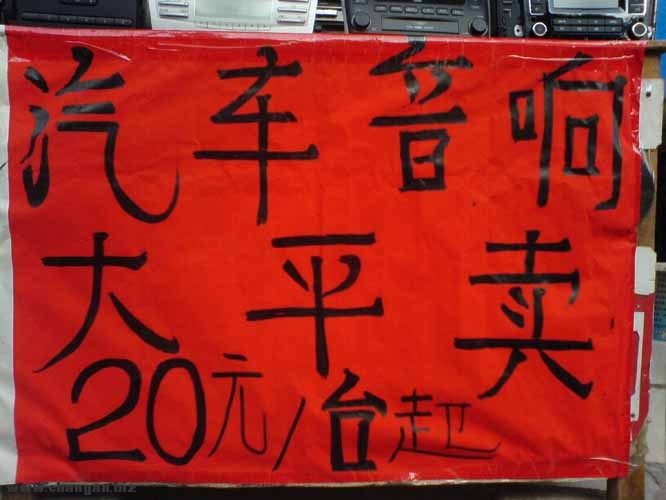 汽车音响
大平卖
20元/台起
www.changan.biz